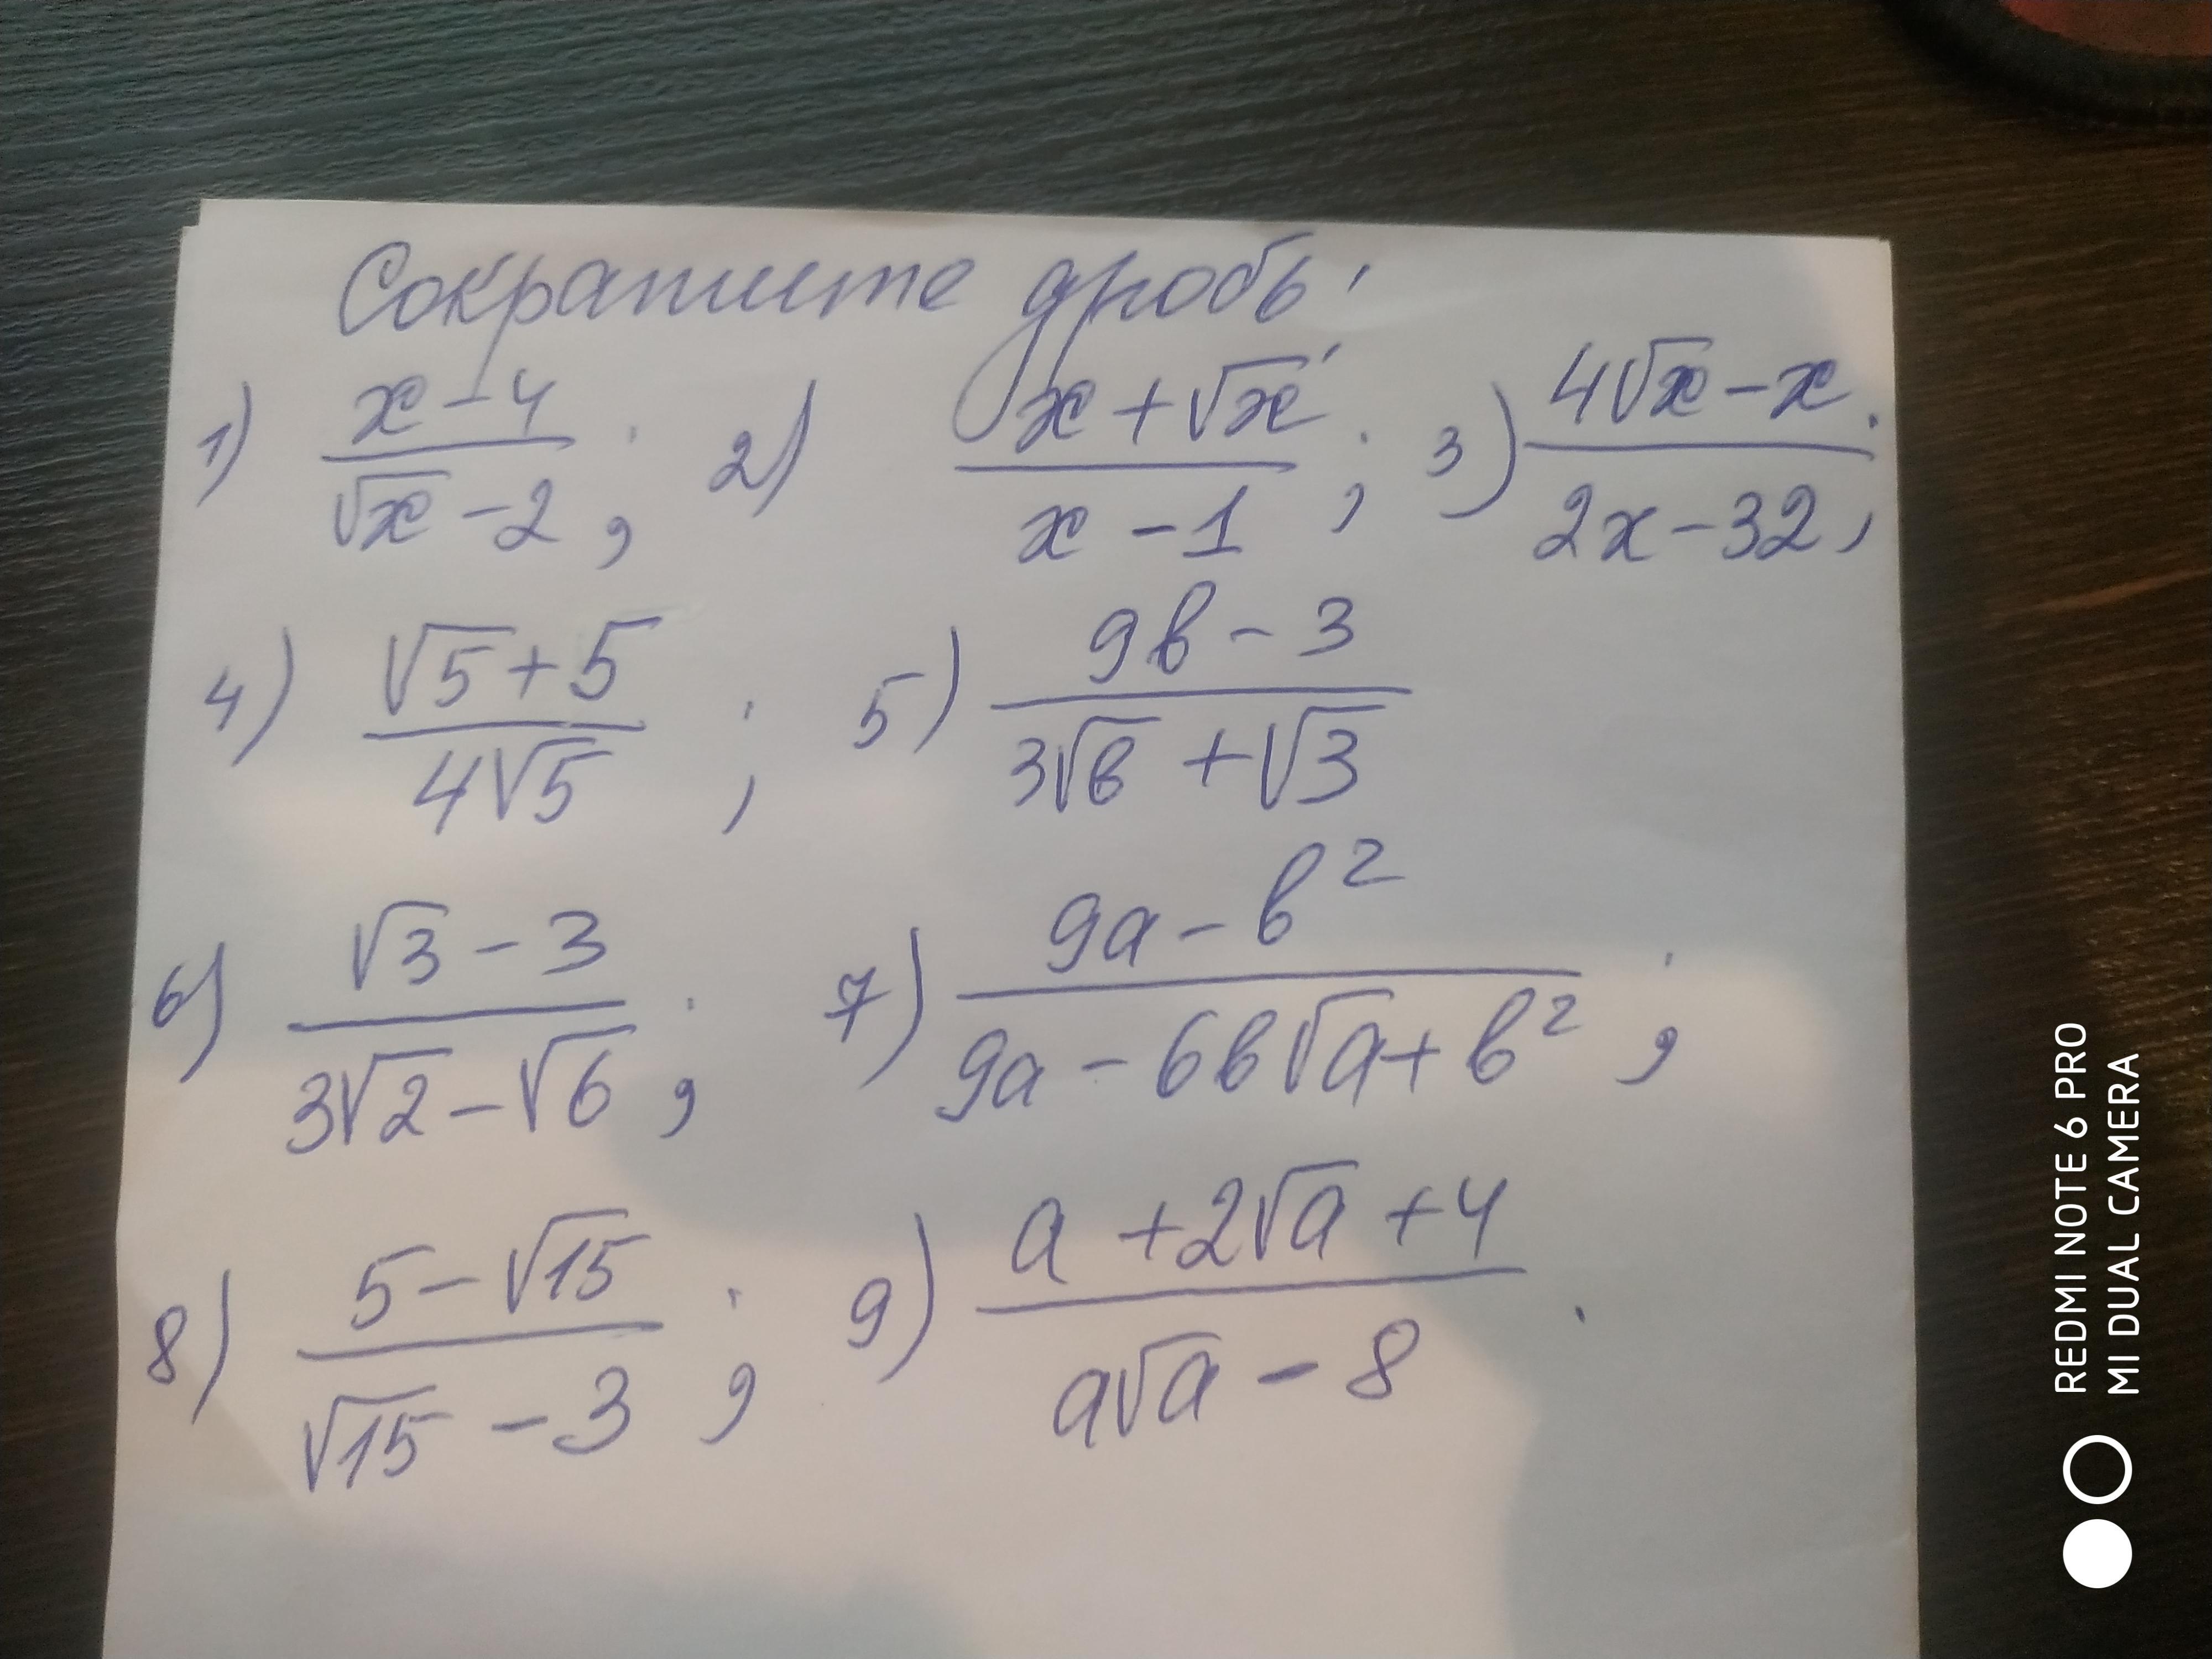 Сократите дробь:
1) (x-4)/(√x-2); 2) (x+√x)/(x-1); 3) (4√x-x)/(2x-32);
4) (√5+5)/(4√5); 5) (9b-3)/(3√b+√3)
6) (√3-3)/(3√2-√6); 7) (9a-b²)/(9a-6b√a+b²);
8) (5-√15)/(√15-3); 9) (a+2√a+4)/(a√a-8).
REDMI NOTE 6 PRO
MI DUAL CAMERA